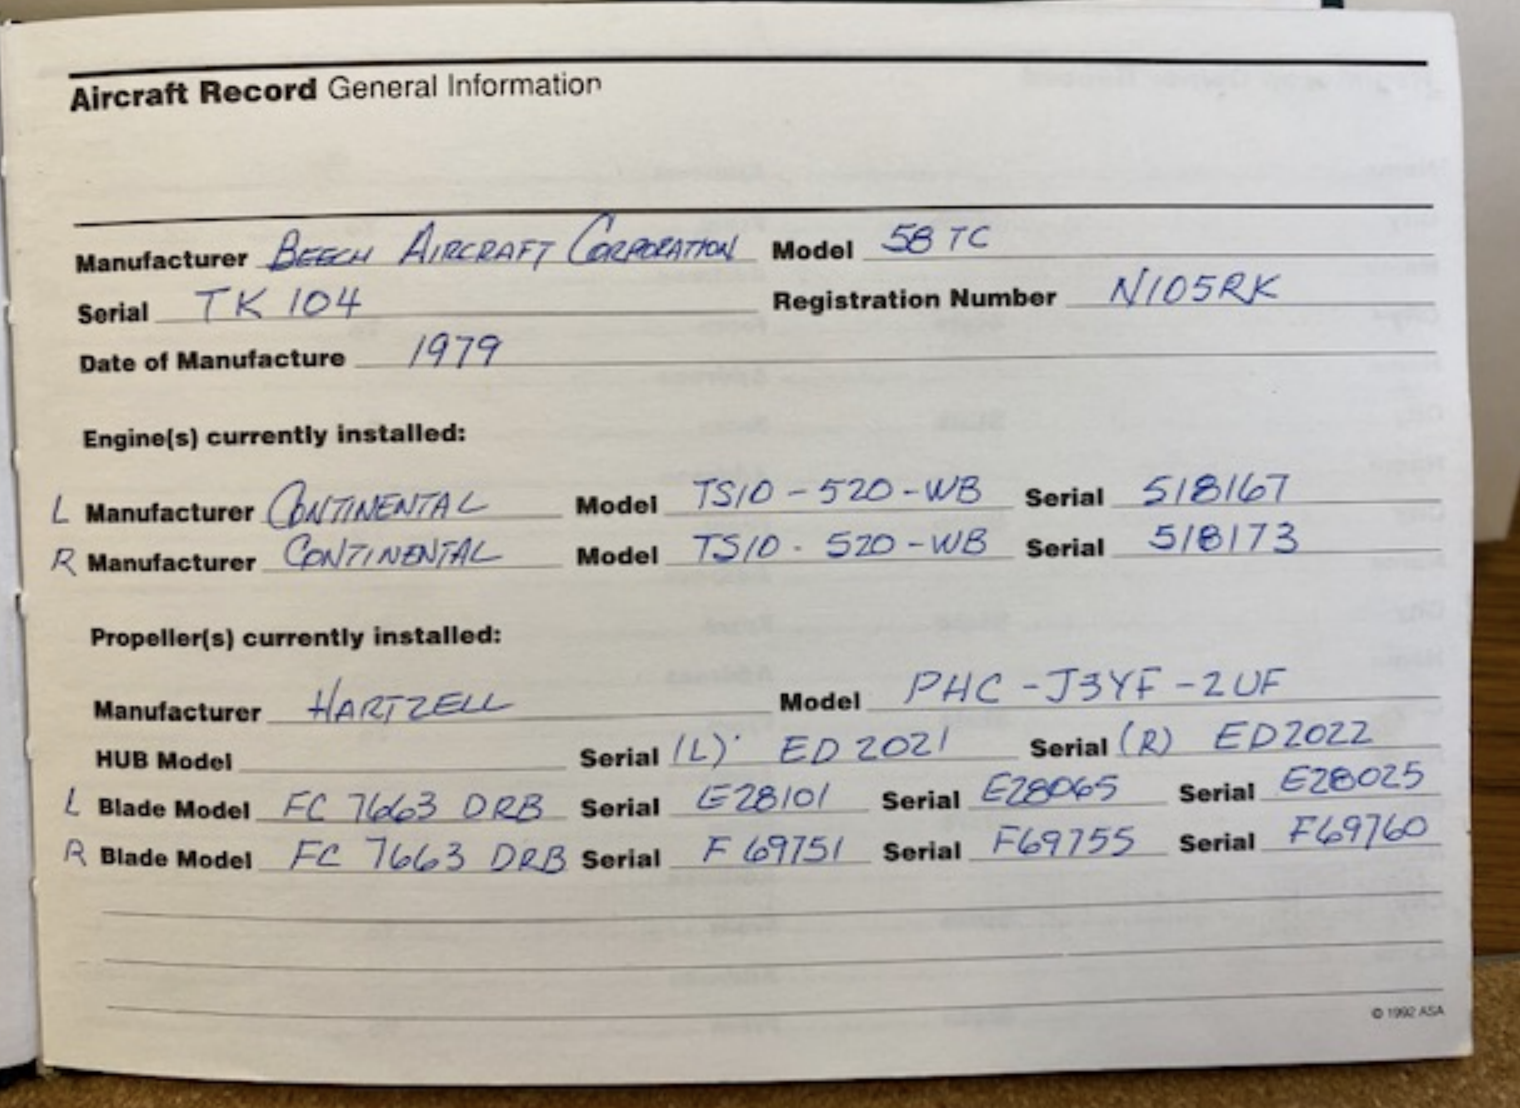 Aircraft Record General Information
Manufacturer BEECH AIRCRAFT CORPORATION Model 58 TC
Serial TK 104 Registration Number N105RK
Date of Manufacture 1979
Engine(s) currently installed:
L Manufacturer CONTINENTAL Model TSIO-520-WB Serial 518167
R Manufacturer CONTINENTAL Model TSIO-520-WB Serial 518173
Propeller(s) currently installed:
Manufacturer HARTZELL Model PHC-J3YF-2UF
HUB Model Serial (L) ED2021 Serial (R) ED2022
L Blade Model FC 7663 DRB Serial E28101 Serial E28065 Serial E28025
R Blade Model FC 7663 DRB Serial F69751 Serial F69755 Serial F69760
© 1992 ASA